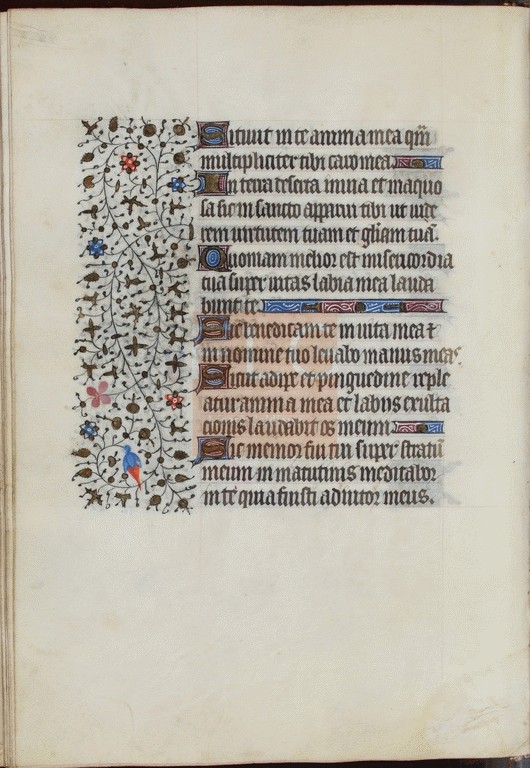 Sitiuit in te anima mea qm̄
multipliciter tibi caro mea
In terra deserta inuia et inaquo
sa sic in sancto apparui tibi ut uide
rem uirtutem tuam et gl̄iam tuā.
Quoniam melior est misericordia
tua super uitas labia mea lauda
bunt te
Sic benedicam te in uita mea ⁊
in nomine tuo leuabo manus meas.
Sicut adipe et pinguedine reple
atur anima mea et labiis exulta
cionis laudabit os meum
Sic memor fui tui super stratū
meum in matutinis meditabor
in te quia fuisti adiutor meus.